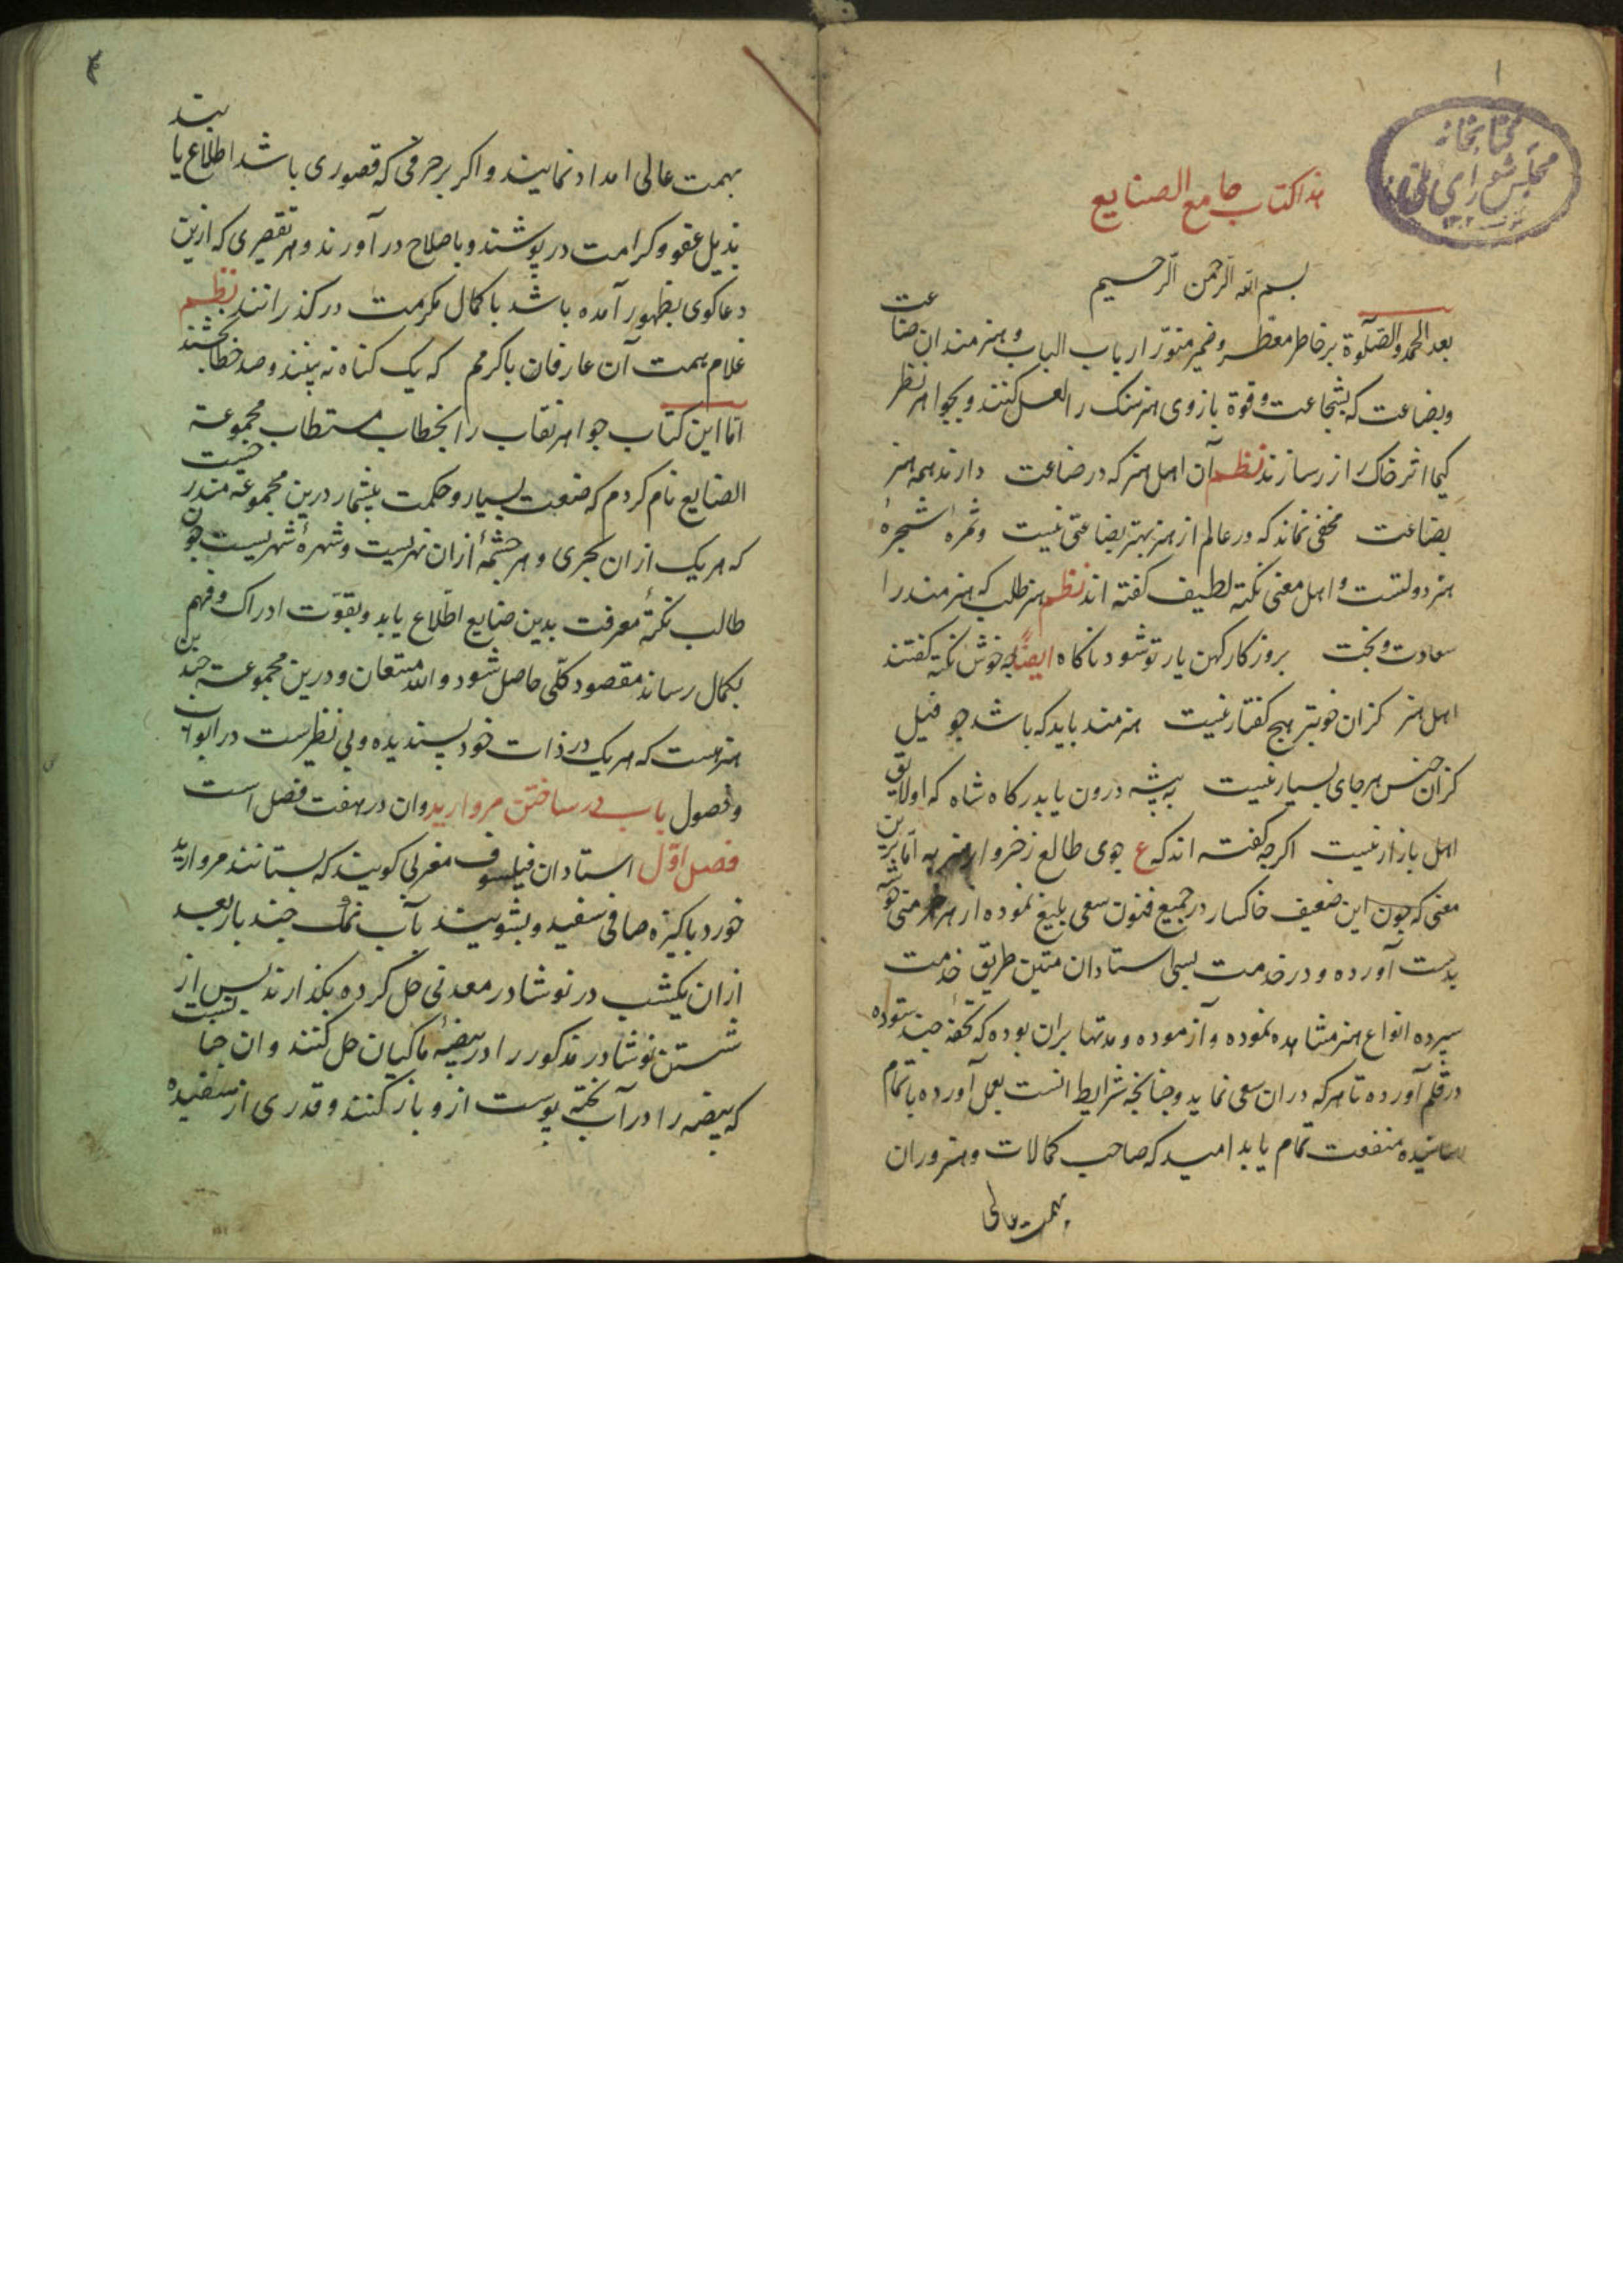 ۱
کتابخانه
مجلس شورای ملی
هذا کتاب جامع الصنایع
بسم الله الرحمن الرحیم
بعد الحمد والصلوة بر خاطر معطر وضمیر منور ارباب الباب و هنرمندان صناعت
وبضاعت که بشجاعت وقوة بازوی هنر سنک را لعل کنند و بجواهر نظر
کیمیا اثر خاک را زر سازند نظم آن اهل هنر که در صناعت دارند همه هنر
بضاعت مخفی نماند که در عالم از هنر بهتر بضاعتی نیست وثمرهٔ شجرهٔ
هنر دولتست و اهل معنی نکتهٔ لطیف کفته اند نظم هنر طلب که هنرمند را
سعادت وبخت بروزکار کهن یار تو شود ناکاه ایضا چه خوش نکته کفتند
اهل هنر کزان خوبتر هیچ کفتار نیست هنرمند باید که باشد چو فیل
کزان جنس هر جای بسیار نیست به بیشه درون یا بدرکاه شاه که او لایق
اهل بازار نیست اکرچه کفته اند که ع جوی طالع زخروار هنر به اما برین
معنی که چون این ضعیف خاکسار در جمیع فنون سعی بلیغ نموده از هر خرمنی خوشه
بدست آورده و در خدمت بسی استادان متین طریق خدمت
سپرده انواع هنر مشاهده نموده وآزموده ومدتها بران بوده که تحفهٔ چند ستوده
در قلم آورده تا هر که دران سعی نماید وچنانچه شرایط انست بعمل آورده باتمام
رسانیده منفعت تمام یابد امید که صاحب کمالات وهنروران
بهمت عالی
بهمت عالی امداد نمایند و اکر بر حرفی که قصوری باشد اطلاع یابند
بذیل عفو و کرامت در پوشند و باصلاح در آورند و هر تقصیری که ازین
دعاکوی بظهور آمده باشد با کمال مکرمت در کذرانند نظم
غلام همت آن عارفان باکرمم که یک کناه نه بینند و صد خطا بخشند
اما این کتاب جواهر نقاب را بخطاب مستطاب مجموعة
الصنایع نام کردم که صنعت بسیار وحکمت بیشمار درین مجموعه مندرجست
که هر یک ازان بحری و هر چشمهٔ ازان نهریست وشهرهٔ شهریست چون
طالب نکتهٔ معرفت بدین صنایع اطلاع یابد وبقوت ادراک وفهم
بکمال رساند مقصود کلی حاصل شود والله المستعان و درین مجموعه چندین
هنرهست که هر یک در ذات خود پسندیده وبی نظیرست در ابواب
وفصول باب در ساختن مروارید وان در هفت فصل است
فصل اول استادان فیلسوف مغربی کویند که بستانند مروارید
خورد پاکیزه صافی سفید و بشویند بآب نمک چند بار بعد
ازان یکشب در نوشادر معدنی حل کرده بکذارند پس از
شستن نوشادر مذکور را در بیضهٔ ماکیان حل کنند وان چنانست
که بیضه را در آب پخته پوست ازو باز کنند وقدری از سفیده